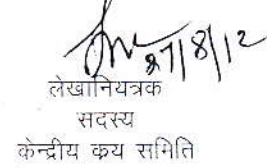 27/8/12
लेखानियत्रक
सदस्य
केन्द्रीय कय समिति